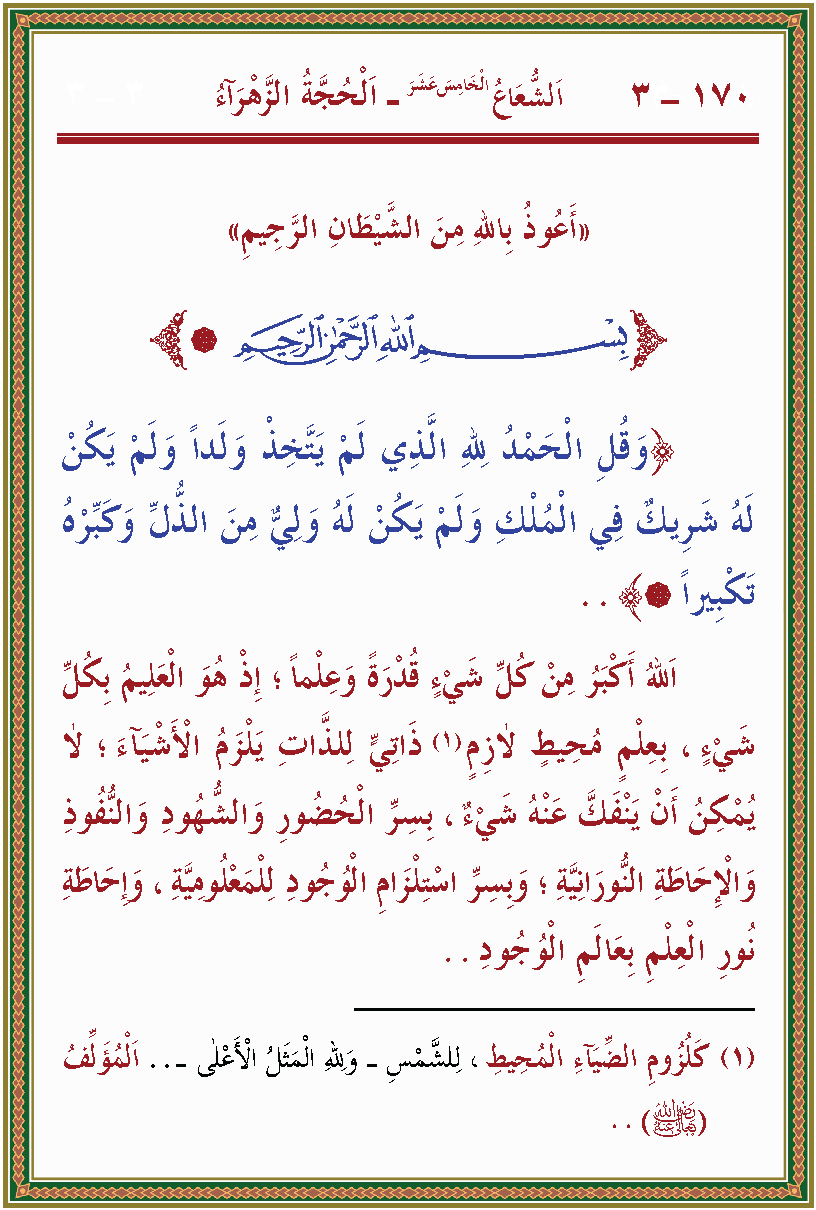 ١٧٠ – ٣ اَلشُّعَاعُ الْخَامِسَ عَشَرَ – اَلْحُجَّةُ الزَّهْرَآءُ ٣ – ٣
«أَعُوذُ بِاللهِ مِنَ الشَّيْطَانِ الرَّجِيمِ»
﴿بِسْمِ اللهِ الرَّحْمٰنِ الرَّحِيمِ ۝﴾
﴿وَقُلِ الْحَمْدُ لِلهِ الَّذِي لَمْ يَتَّخِذْ وَلَداً وَلَمْ يَكُنْ
لَهُ شَرِيكٌ فِي الْمُلْكِ وَلَمْ يَكُنْ لَهُ وَلِيٌّ مِنَ الذُّلِّ وَكَبِّرْهُ
تَكْبِيراً ۝﴾ . .
اَللهُ أَكْبَرُ مِنْ كُلِّ شَيْءٍ قُدْرَةً وَعِلْماً ؛ إِذْ هُوَ الْعَلِيمُ بِكُلِّ
شَيْءٍ ، بِعِلْمٍ مُحِيطٍ لَازِمٍ(١) ذَاتِيٍّ لِلذَّاتِ يَلْزَمُ الْأَشْيَآءَ ؛ لَا
يُمْكِنُ أَنْ يَنْفَكَّ عَنْهُ شَيْءٌ ، بِسِرِّ الْحُضُورِ وَالشُّهُودِ وَالنُّفُوذِ
وَالْإِحَاطَةِ النُّورَانِيَّةِ ؛ وَبِسِرِّ اسْتِلْزَامِ الْوُجُودِ لِلْمَعْلُومِيَّةِ ، وَإِحَاطَةِ
نُورِ الْعِلْمِ بِعَالَمِ الْوُجُودِ . .
(١) كَلُزُومِ الضِّيَآءِ الْمُحِيطِ ، لِلشَّمْسِ – وَلِلهِ الْمَثَلُ الْأَعْلٰى – . . اَلْمُؤَلِّفُ
(رَضِيَ اللهُ تَعَالٰى عَنْهُ) . .